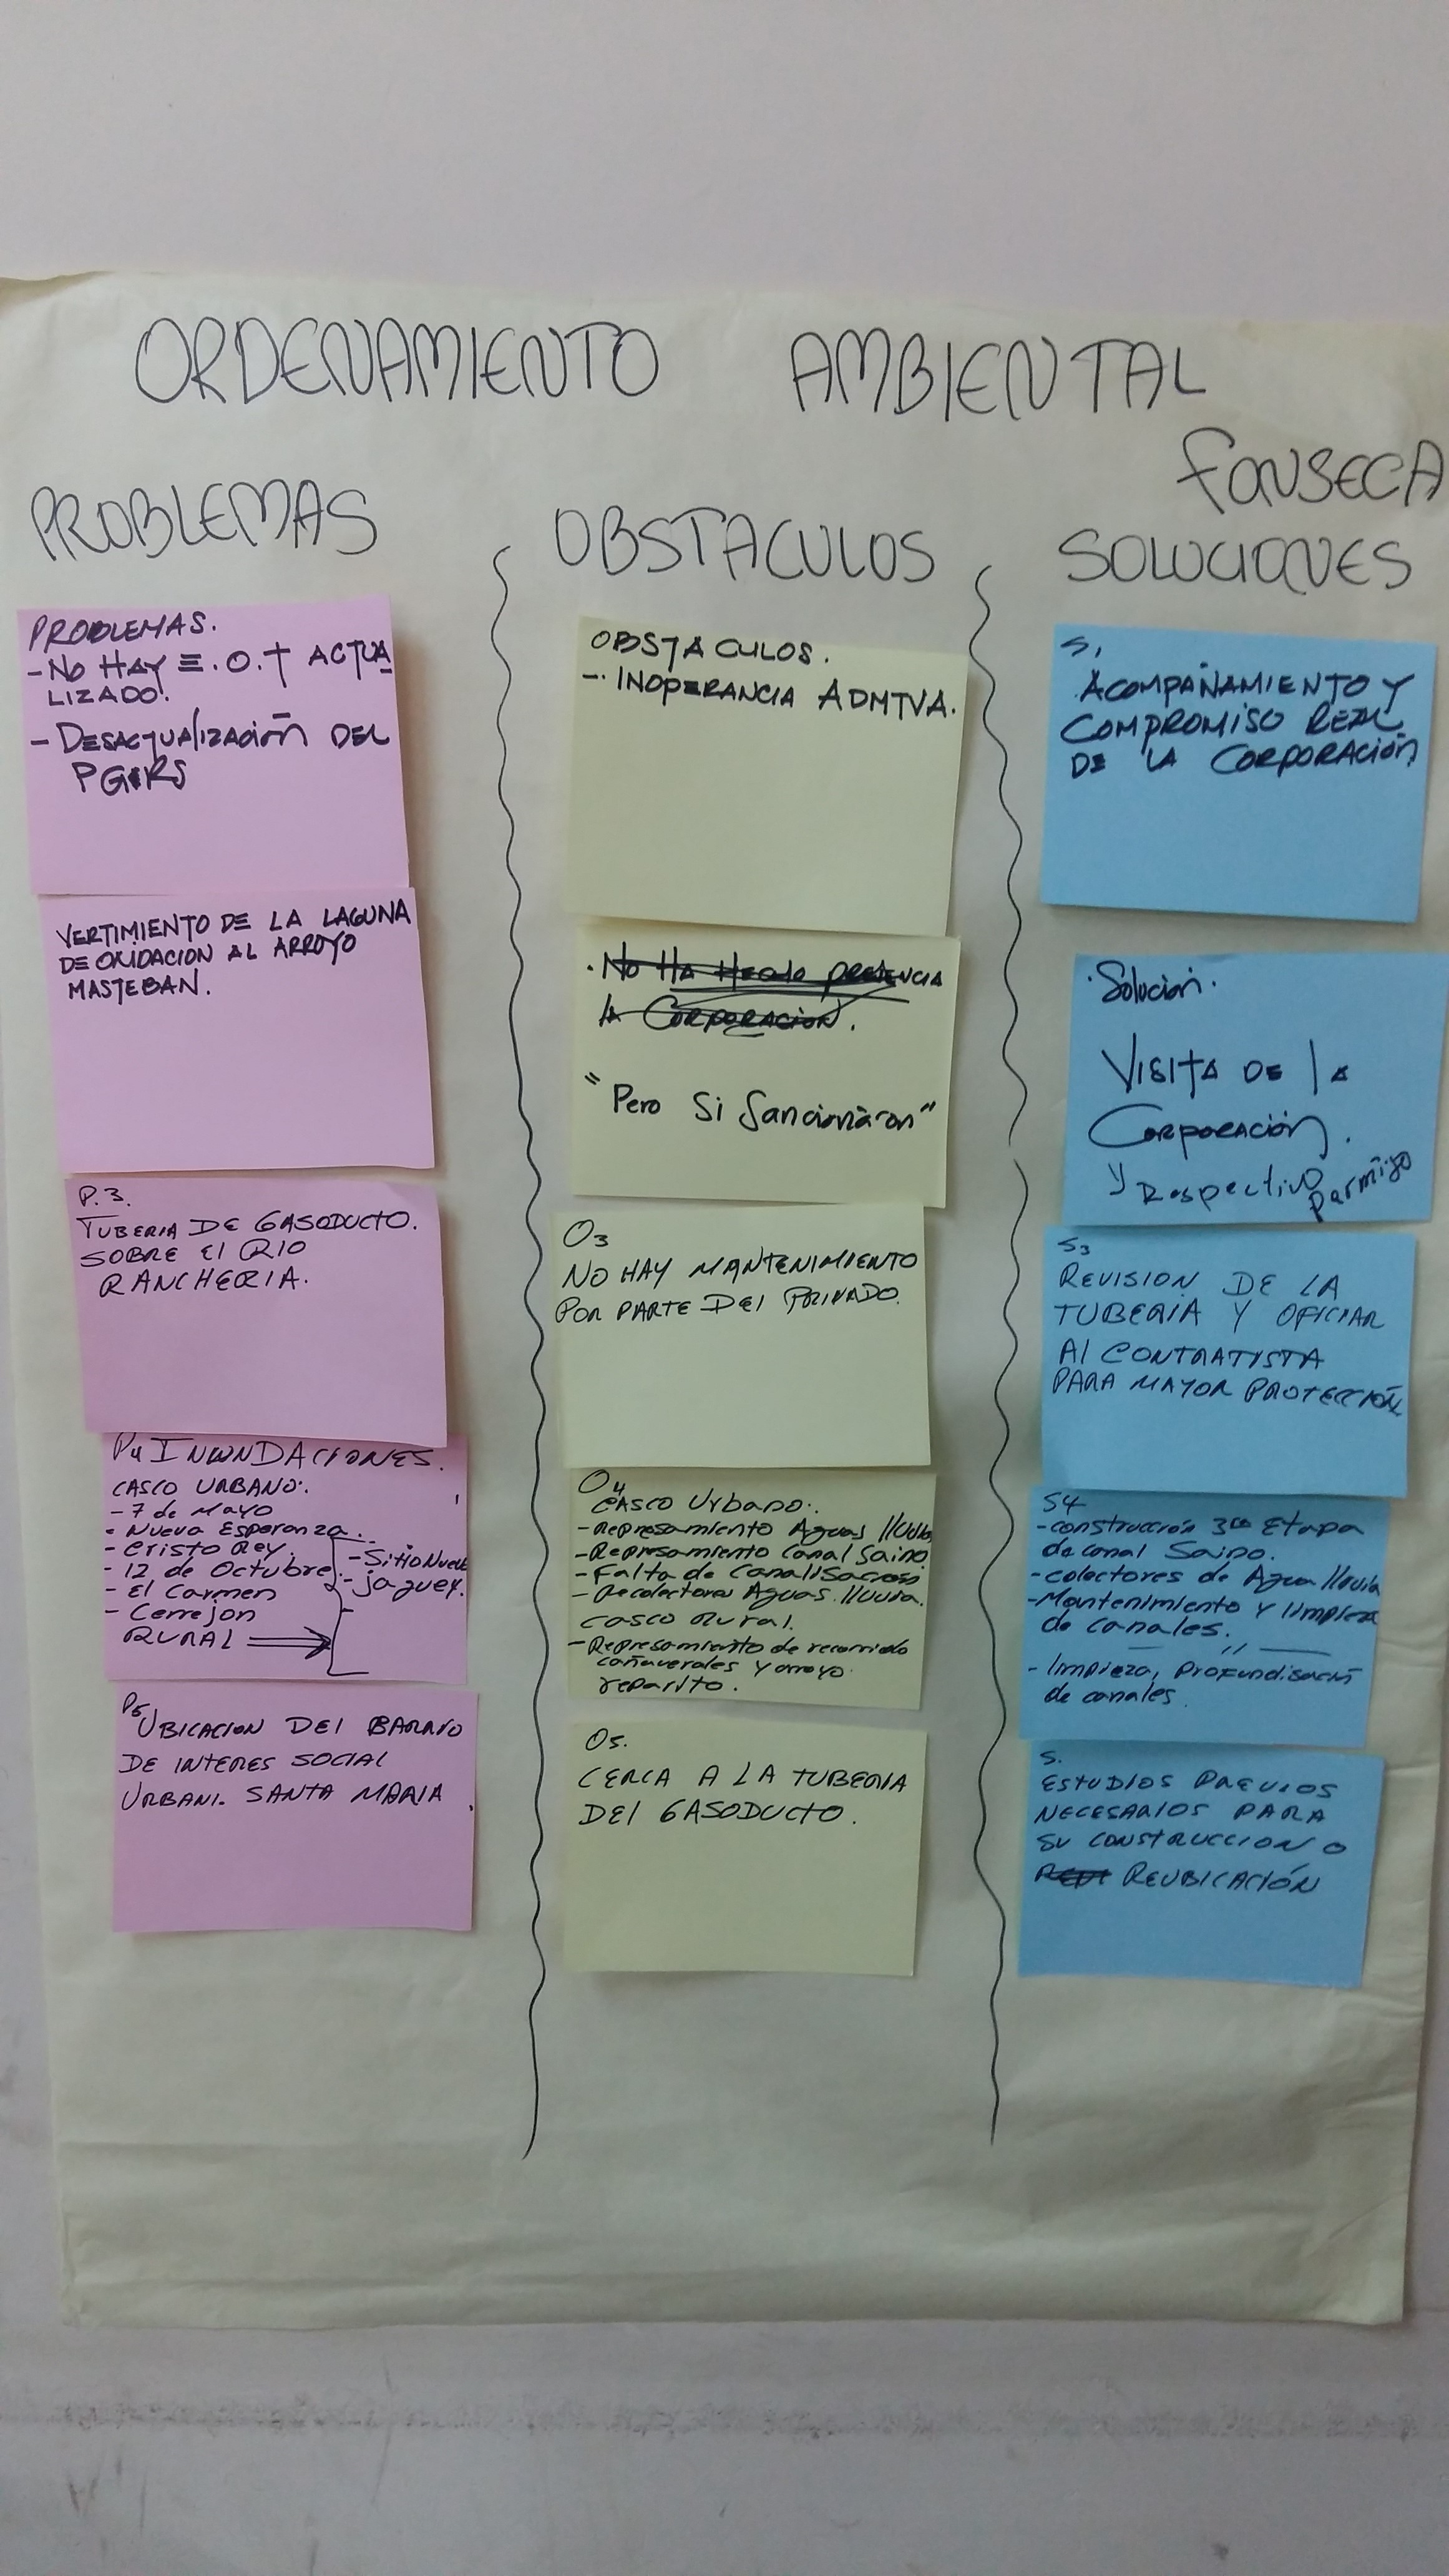 ORDENAMIENTO AMBIENTAL
FONSECA
PROBLEMAS
PROBLEMAS.
- NO HAY E.O.T ACTUA
LIZADO.
- DESACTUALIZACIÓN DEL
PGIRS
VERTIMIENTO DE LA LAGUNA
DE OXIDACION AL ARROYO
MASTEBAN.
P.3.
TUBERIA DE GASODUCTO.
SOBRE El RIO
RANCHERIA.
P4 INUNDACIONES.
CASCO URBANO:
- 7 de Mayo
- Nueva Esperanza.
- Cristo Rey.
- 12 de Octubre
- El Carmen
- Cerrejon
RURAL
- Sitio Nuevo
- jaguey.
P5 UBICACION DEl BARRIO
DE INTERES SOCIAL
URBANI. SANTA MARIA.
OBSTACULOS
OBSTACULOS.
-. INOPERANCIA ADMTVA.
. No HA Hecho PRESENCIA
lA CORPORACION.
"Pero Si Sancionaron"
O3
NO HAY MANTENIMIENTO
POR PARTE DEl PRIVADO.
O4
CASCO Urbano:.
- Represamiento Aguas lluvia
- Represamiento Canal Saino
- Falta de
- Recolectores Aguas lluvia.
CASCO Rural.
- Represamiento de recorrido
cañaverales y arroyo
reparito.
O5.
CERCA A LA TUBERIA
DEl GASODUCTO.
SOLUCIONES
S1
ACOMPAÑAMIENTO Y
COMPROMISO REAL
DE LA CORPORACIÓN
. Solución.
VISITA DE lA
CORPORACIÓN.
y Respectivo permiso
S3
REVISION DE LA
TUBERIA Y OFICIAR
Al CONTRATISTA
PARA MAYOR PROTECCIÓN
S4
- construcción 3ra Etapa
de canal Saino.
- colectores de Agua lluvia
- Mantenimiento y limpieza
de canales.
- limpieza, profundisación
de canales.
S.
ESTUDIOS PREVIOS
NECESARIOS PARA
SU CONSTRUCCION O
REUBICACIÓN